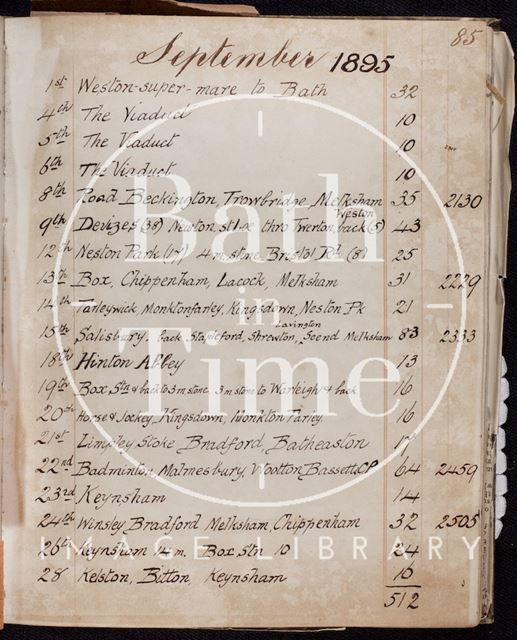 85
September 1895
1st Weston-super-mare to Bath 32
4th The Viaduct 10
5th The Viaduct 10
6th The Viaduct 10
8th Road Beckington, Trowbridge Melksham 35 2130
Weston
9th Devizes (38) Newton, st Loe thro Twerton, back (5) 43
12th Neston Park (17) 4 m stone Bristol Rd (8) 25
13th Box, Chippenham, Lacock, Melksham 31 2229
14th Farleywick, Monktonfarley, Kingsdown, Neston Pk 21
Lavington
15th Salisbury. back Stapleford, Shrewton, Seend Melksham 83 2333
18th Hinton Abbey 13
19th Box Stn & back to 3m stone, 3m stone to Warleigh & back 16
20th Horse & Jockey, Kingsdown, Monkton Farley. 16
21st Limpley Stoke Bradford, Batheaston 17
22nd Badminton Malmesbury, Wootton Bassett, CP 64 2459
23rd Keynsham 14
24th Winsley Bradford Melksham, Chippenham 32 2505
26th Keynsham 14 m. Box Stn 10 24
28 Kelston, Bitton, Keynsham 16
512
Bath
in
Time
IMAGE LIBRARY